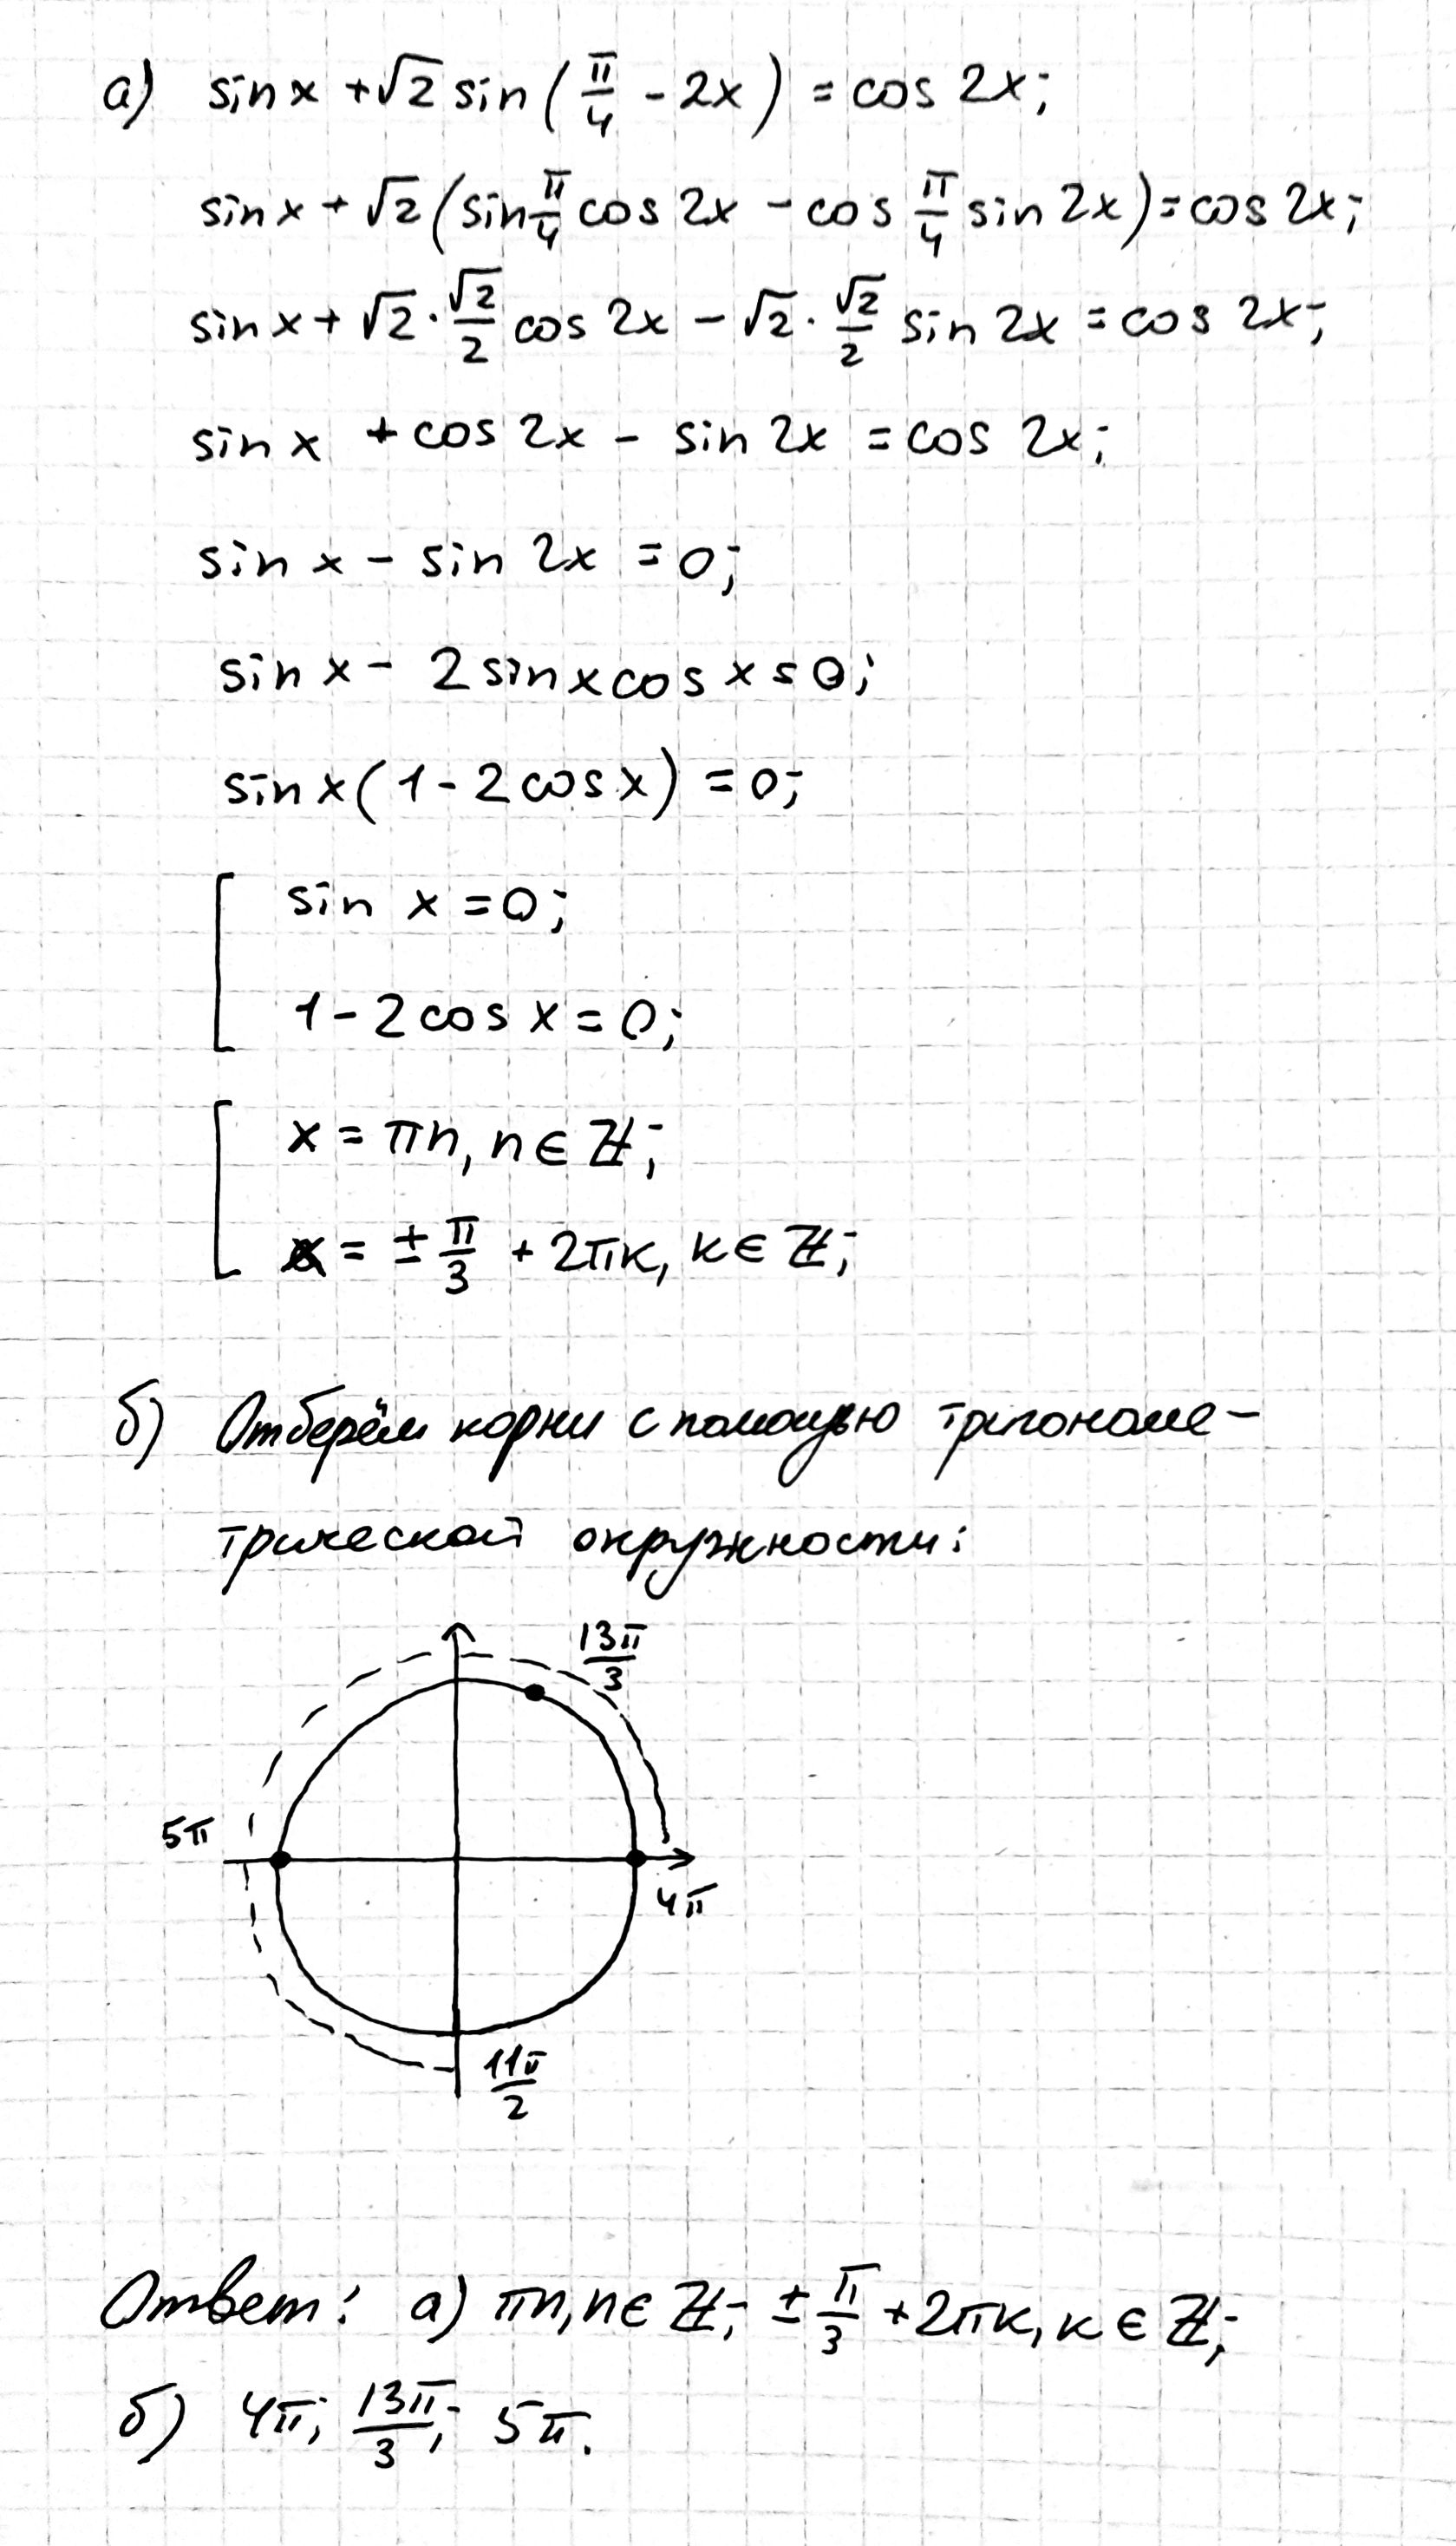 а) sin x + √2 sin(π/4 - 2x) = cos 2x;
sin x + √2(sin π/4 cos 2x - cos π/4 sin 2x) = cos 2x;
sin x + √2 · √2/2 cos 2x - √2 · √2/2 sin 2x = cos 2x;
sin x + cos 2x - sin 2x = cos 2x;
sin x - sin 2x = 0;
sin x - 2 sin x cos x = 0;
sin x(1 - 2 cos x) = 0;
[ sin x = 0;
1 - 2 cos x = 0;
[ x = πn, n ∈ ℤ;
x = ± π/3 + 2πk, k ∈ ℤ;
б) Отберём корни с помощью тригономе-
трической окружности:
13π/3
5π
4π
11π/2
Ответ: а) πn, n ∈ ℤ; ± π/3 + 2πk, k ∈ ℤ;
б) 4π; 13π/3; 5π.